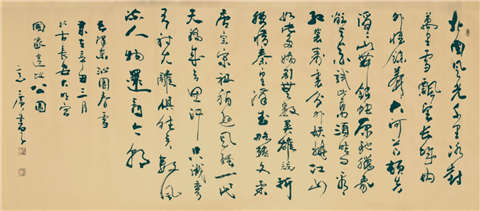 北国风光千里冰封
萬里雪飘望长城内
外惟馀莽莽大河上下顿失
滔滔山舞银蛇原驰蜡象
欲与天公试比高须晴日看
红装素裹分外妖娆江山
如此多娇引无数英雄竞折
腰惜秦皇汉武略输文采
唐宗宋祖稍逊风骚一代
天骄成吉思汗只识弯
弓射大雕俱往矣数风
流人物还看今朝
毛泽东沁园春雪
三月
於古长安大明宫
国家遗址公园